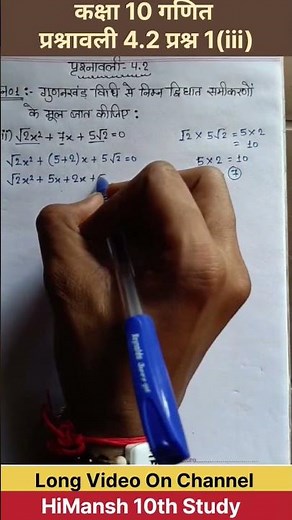 कक्षा 10 गणित
प्रश्नावली 4.2 प्रश्न 1(iii)
प्रश्नावली - 4.2
:- गुणनखंड विधि से निम्न द्विघात समीकरणों
के मूल ज्ञात कीजिए :
√2x² + 7x + 5√2 = 0
√2 × 5√2 = 5×2
= 10
√2x² + (5+2)x + 5√2 = 0
5×2 = 10
√2x² + 5x + 2x + 5
7
Reynolds
Long Video On Channel
HiMansh 10th Study